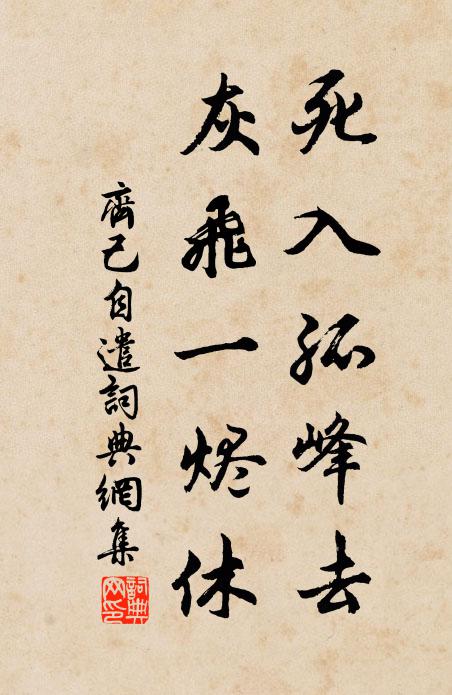 死入孤峰去
灰飛一烬休
齊己自遣詞典網集
詞典
网印